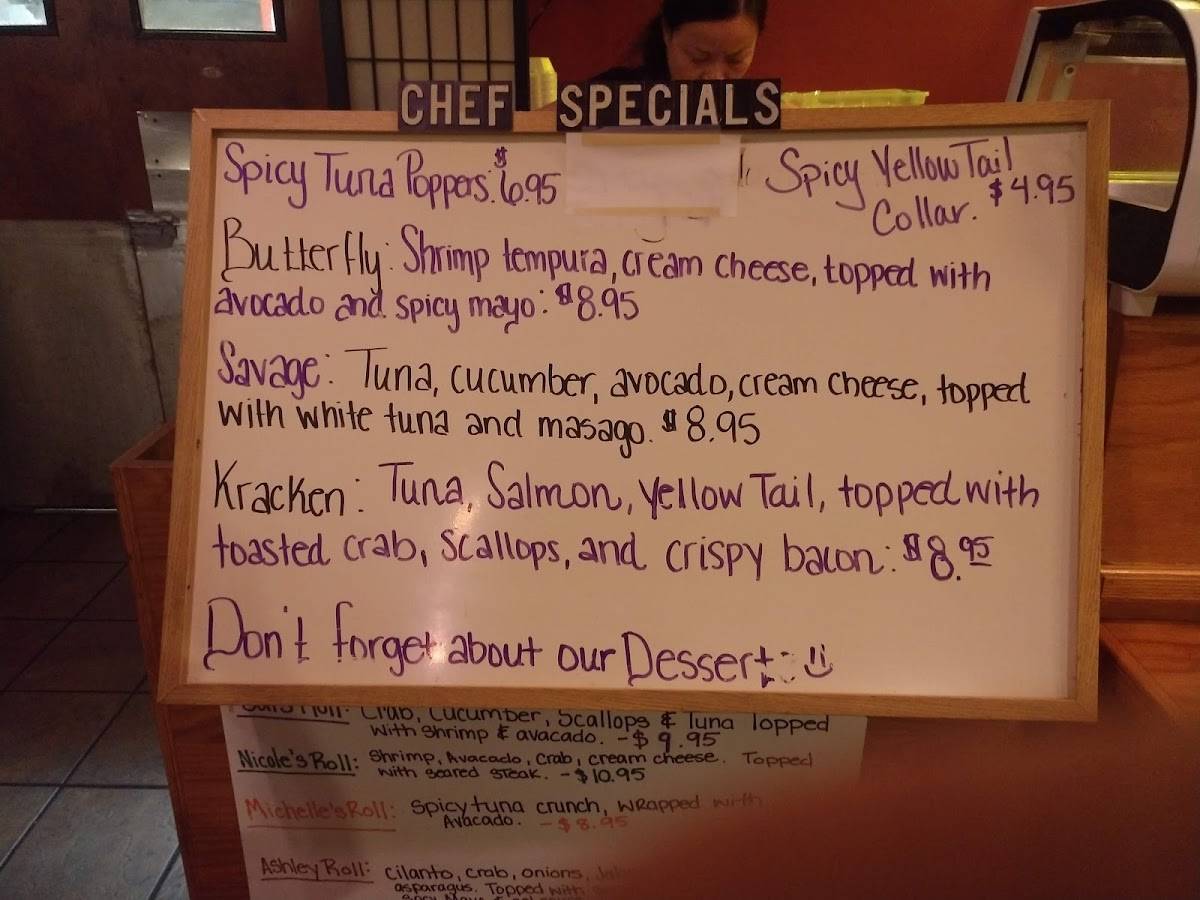 CHEF SPECIALS
Spicy Tuna Poppers. $6.95
Spicy Yellow Tail
Collar. $4.95
Butterfly: Shrimp tempura, cream cheese, topped with
avocado and spicy mayo: $8.95
Savage: Tuna, cucumber, avocado, cream cheese, topped
with white tuna and masago. $8.95
Kracken: Tuna, Salmon, Yellow Tail, topped with
toasted crab, Scallops, and crispy bacon: $8.95
Don't forget about our Dessert
Crab, Cucumber, Scallops & Tuna Topped
with Shrimp & avacado. - $9.95
Nicole's Roll: Shrimp, Avacado, Crab, cream cheese. Topped
with seared steak. - $10.95
Michelle's Roll: Spicy tuna crunch, wrapped with
Avacado. - $8.95
Ashley Roll: Cilanto, crab, onions,
asparagus. Topped with